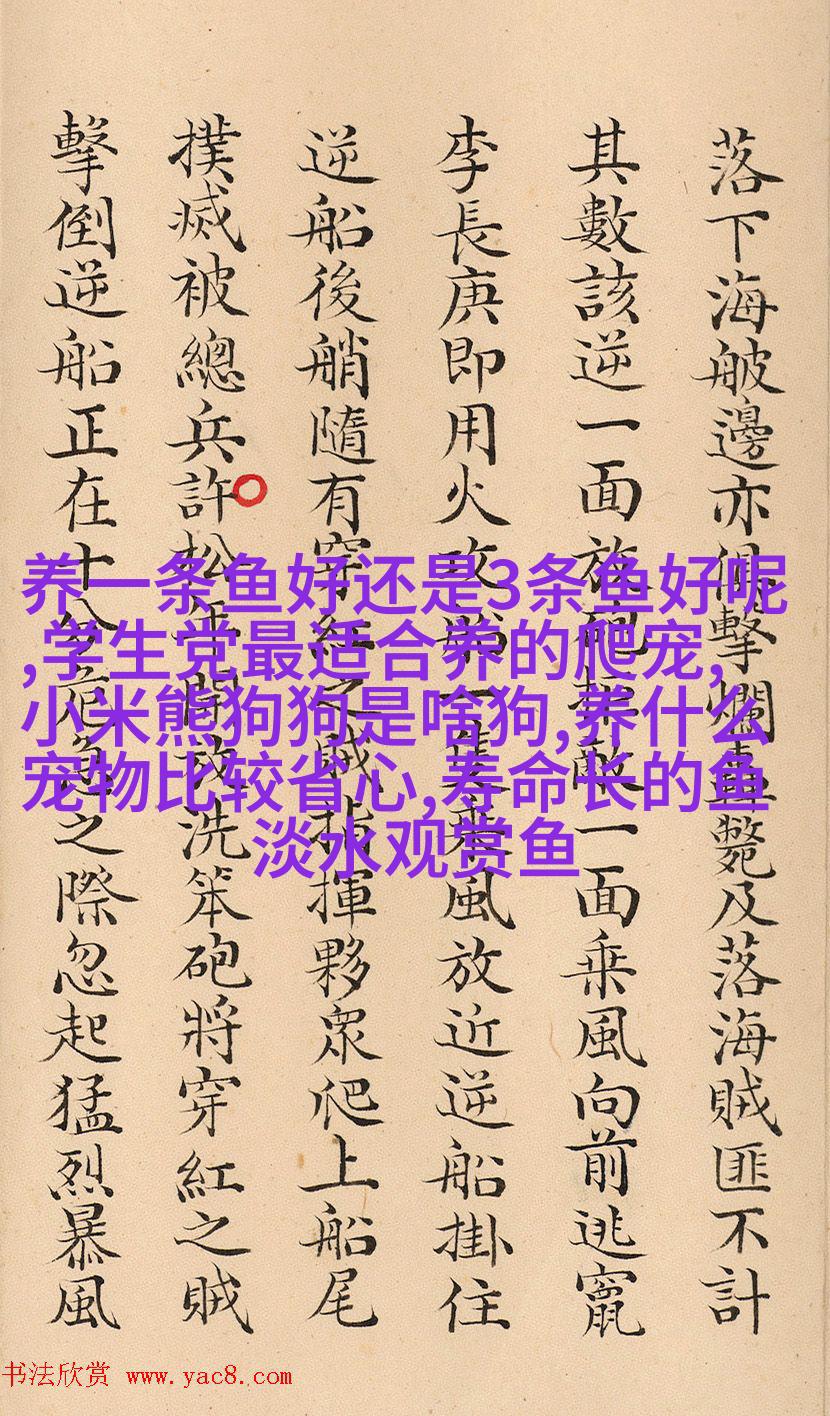 落下海邊亦俱擊爛轟斃及落海賊匪不計
其數該逆一面放砲拒敵一面乘風向前逃竄
李長庚即用火攻船一隻乘風放近逆船掛住
逆船後艄隨有穿紅之賊指揮夥眾爬上船尾
撲滅被總兵許松年開放洗笨砲將穿紅之賊
擊倒逆船正在十分危急之際忽起猛烈暴風
养一条鱼好还是3条鱼好呢
,学生党最适合养的爬宠,
小米熊狗狗是啥狗,养什么
宠物比较省心,寿命长的鱼
淡水观赏鱼
书法欣赏 www.yac8.com